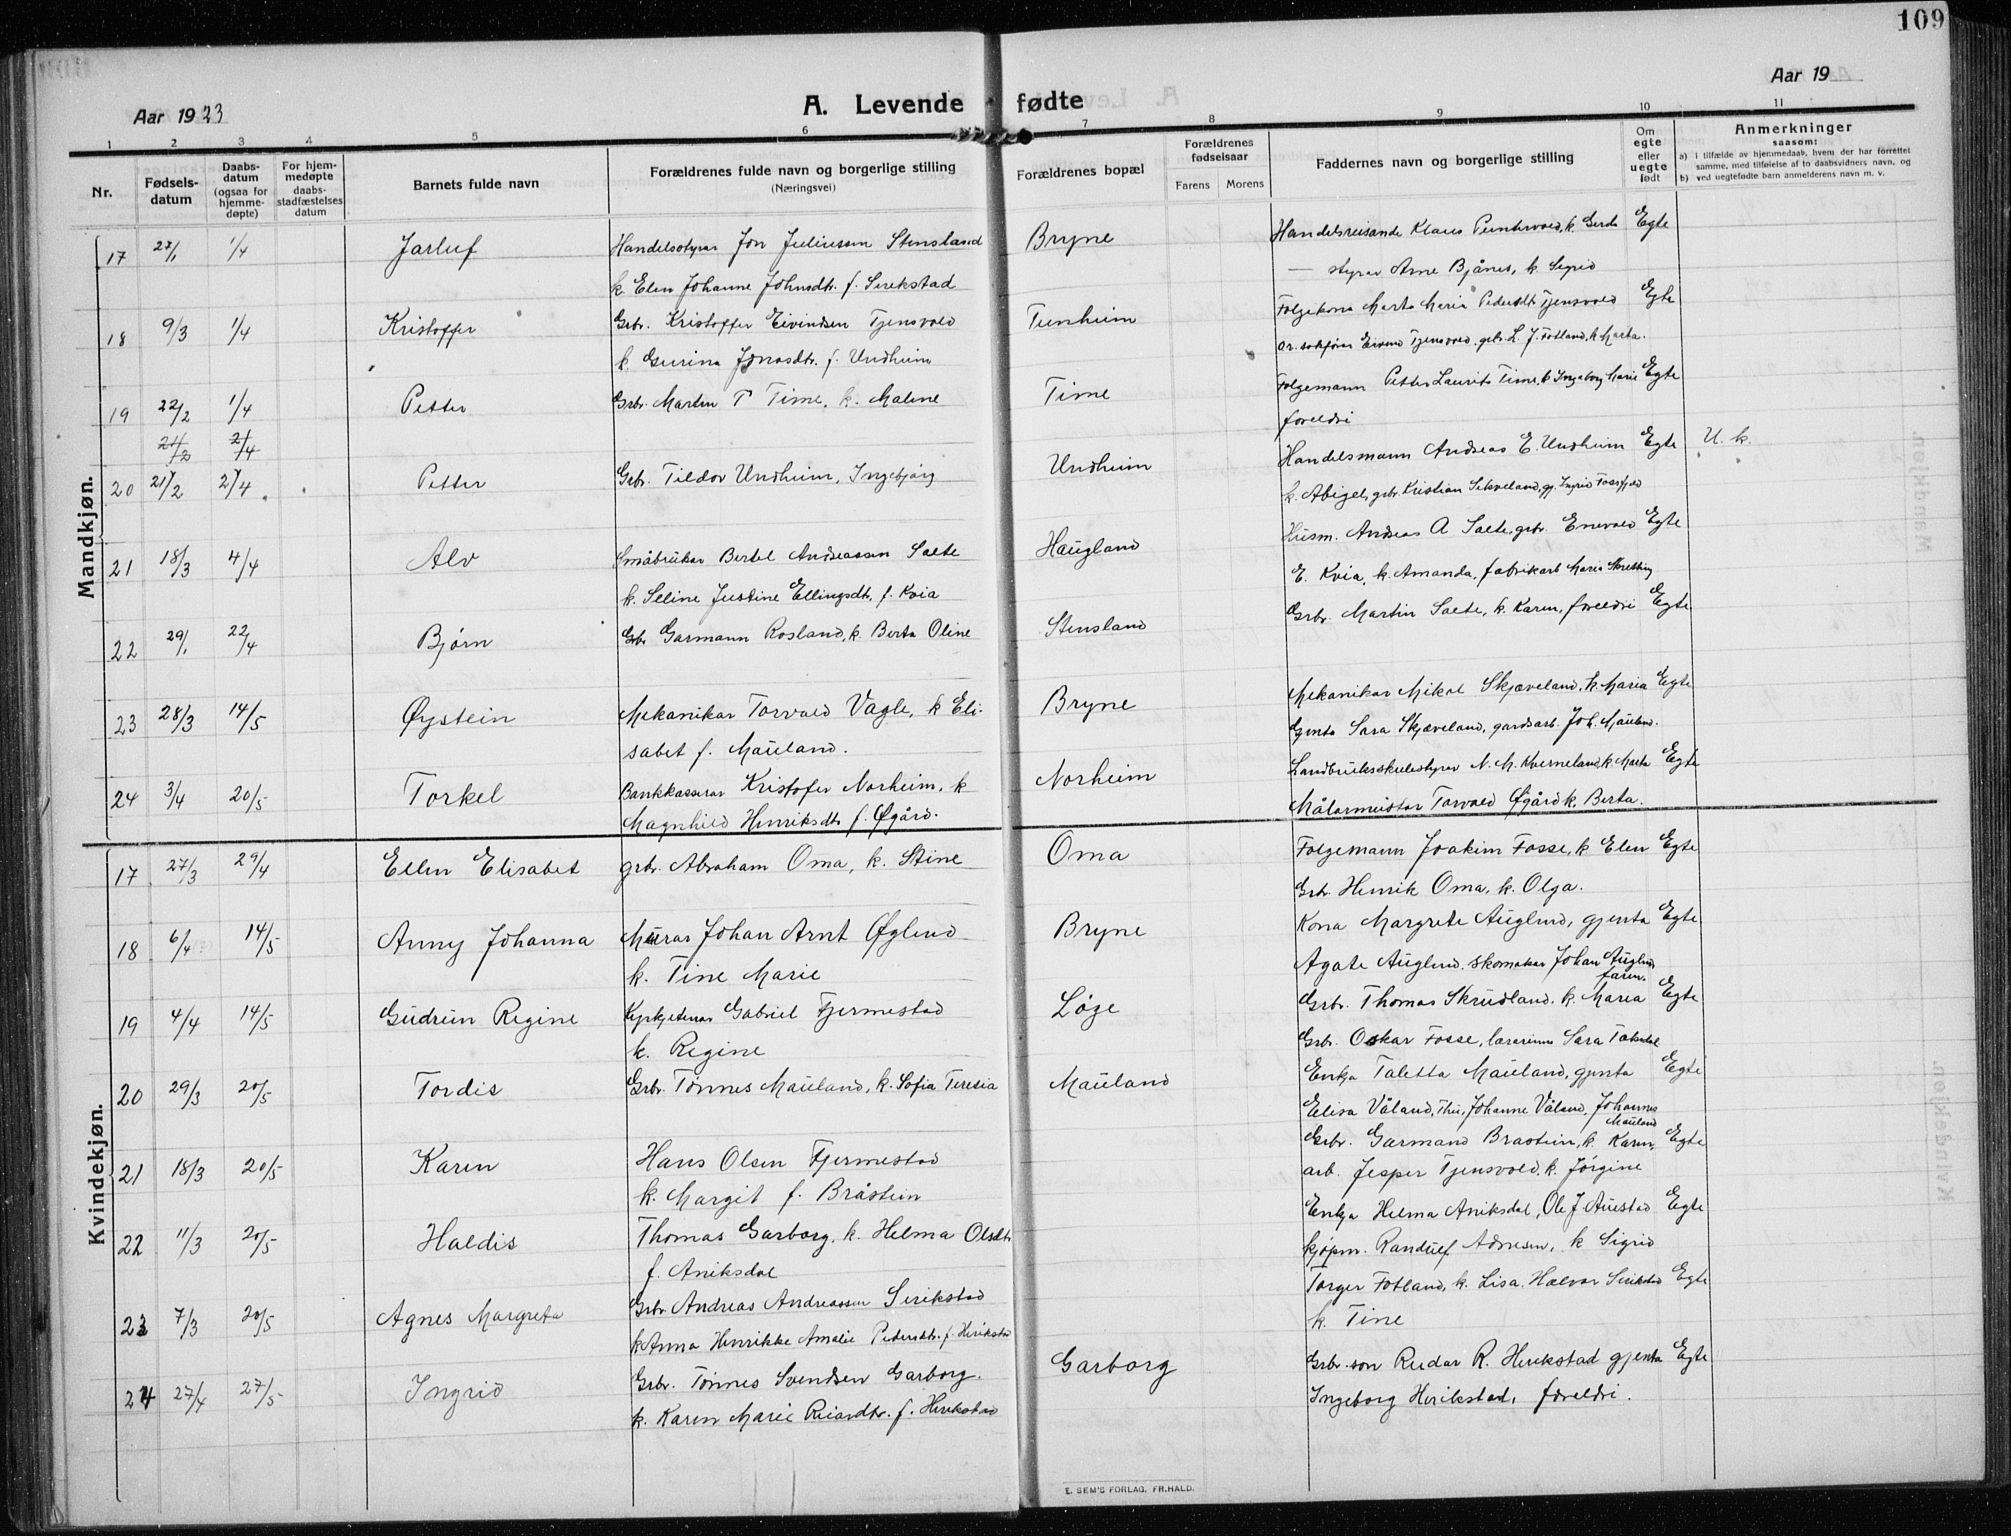 109
Aar 1923
A. Levende fødte
Aar 19
1 2 3 4 5 6 7 8 9 10 11
Nr.
Fødselsdatum
Daabsdatum (ogsaa for hjemmedøpte)
For hjemmedøpte daabsstadfæstelses datum
Barnets fulde navn
Forældrenes fulde navn og borgerlige stilling (Næringsvei)
Forældrenes bopæl
Forældrenes fødselsaar
Farens Morens
Faddernes navn og borgerlige stilling
Om egte eller uegte født
Anmerkninger
saasom:
a) i tilfælde av hjemmedaab, hvem der har forrettet samme, med tilføielse af to daabsvidners navn, og
b) ved uegtefødte barn anmelderens navn m. v.
Mandkjøn.
17 27/1 1/4 Jarluf Handelsstyrar Jon Juliussen Stensland Bryne Handelsreisande Klaus k. Gerda Egte
k. Elen Johanne Johnsdtr. f. Serikstad — styrar Arne Bjånes, k. Sigrid
18 9/3 1/4 Kristoffer Grbr. Kristoffer Eivindsen Tjensvold Tunheim Folgekona Marta Maria Pedersdtr. Tjensvold Egte
k. Gurina Jonasdtr. f. Undheim or. sakførar Eivind Tjensvold, grbr. L. J. Fotland, k. Marta.
19 22/2 1/4 Petter Grbr. Martin T Time, k. Malene Time Folgemann Petter Laurits Time, k. Ingeborg Marie Egte
foreldri
24/2 2/4
20 21/2 2/4 Petter Grbr. Tildor Undheim, Ingebjørg Undheim Handelsmann Andreas E. Undheim Egte U. k.
k. Abigel, grbr. Kristian Sikveland, gj. Ingrid
21 18/3 4/4 Alv Småbrukar Bertel Andreassen Salte Haugland Husm. Andreas A Salte, grbr. Enevald Egte
k. Seline Justine Ellingsdtr. f. Kvia E. Kvia, k. Amanda, fabrikarb. Maria Skretting
22 29/1 22/4 Bjørn Grbr Garmann Rosland, k. Berta Oline Stensland Grbr. Martin Salte, k. Karen, foreldri Egte
23 28/3 14/5 Øystein Mekanikar Torvald Vagle, k Eli- Bryne Mekanikar Mikal Skjæveland, k. Maria Egte
sabet f. Mauland. Gjenta Sara Skjæveland, gardsarb. Joh. Mauland.
24 3/4 20/5 Torkel Bankkasserar Kristofer Norheim, k Norheim Landbruksskulestyrar N. M. Kverneland, k. Marta Egte
Magnhild Henriksdtr f. Øgård. Målarmeistar Torvald Øgård k. Berta.
Kvindekjøn.
17 27/3 29/4 Ellen Elisabet grbr. Abraham Oma, k. Stine Oma Folgemann Joakim Fosse, k Elen Egte
Grbr. Henrik Oma, k. Olga.
18 6/4 14/5 Anny Johanna Murar Johan Arnt Øglend Bryne Kona Margrete Auglend, gjenta Egte
k. Tine Marie Agate Auglend, skomakar Johan Auglend
faren.
19 4/4 14/5 Gudrun Regine Kyrkjetenar Gabriel Fjermestad Løge Grbr. Thomas Skrudland, k. Maria Egte
k. Regine Grbr. Oskar Fosse, lærarinne Sara
20 29/3 20/5 Tordis Grbr. Tønnes Mauland, k. Sofia Teresia Mauland Enkja Taletta Mauland, gjenta Egte
Elisa Våland, Thu, Johanne Våland, Johannes
Mauland
21 18/3 20/5 Karen Hans Olsen Fjermestad Grbr. Garmand Brastein, k. Karen, Egte
k. Margit f. Bråstein arb. Jesper Tjensvold, k. Jørgine
22 11/3 20/5 Haldis Thomas Garborg, k. Helma Olsdtr Enkja Helma Aniksdal, Ole J Austad Egte
f. Aniksdal kjøpm. Randulf Adnesen, k Sigrid
23 7/3 20/5 Agnes Margreta Grbr Andreas Andreassen Serikstad Torger Fotland, k. Lisa. Halvor Serikstad Egte
k Anna Henrikke Amalie Pedersdtr. f. Herikstad k. Tine
24 27/4 27/5 Ingrid Grbr. Tønnes Svendsen Garborg. Garborg Grbr.son Reidar R. Herikstad gjenta Egte
k. Karen Marie f. Herikstad Ingeborg Herikstad, foreldri.
E. SEM'S FORLAG, FR.HALD.